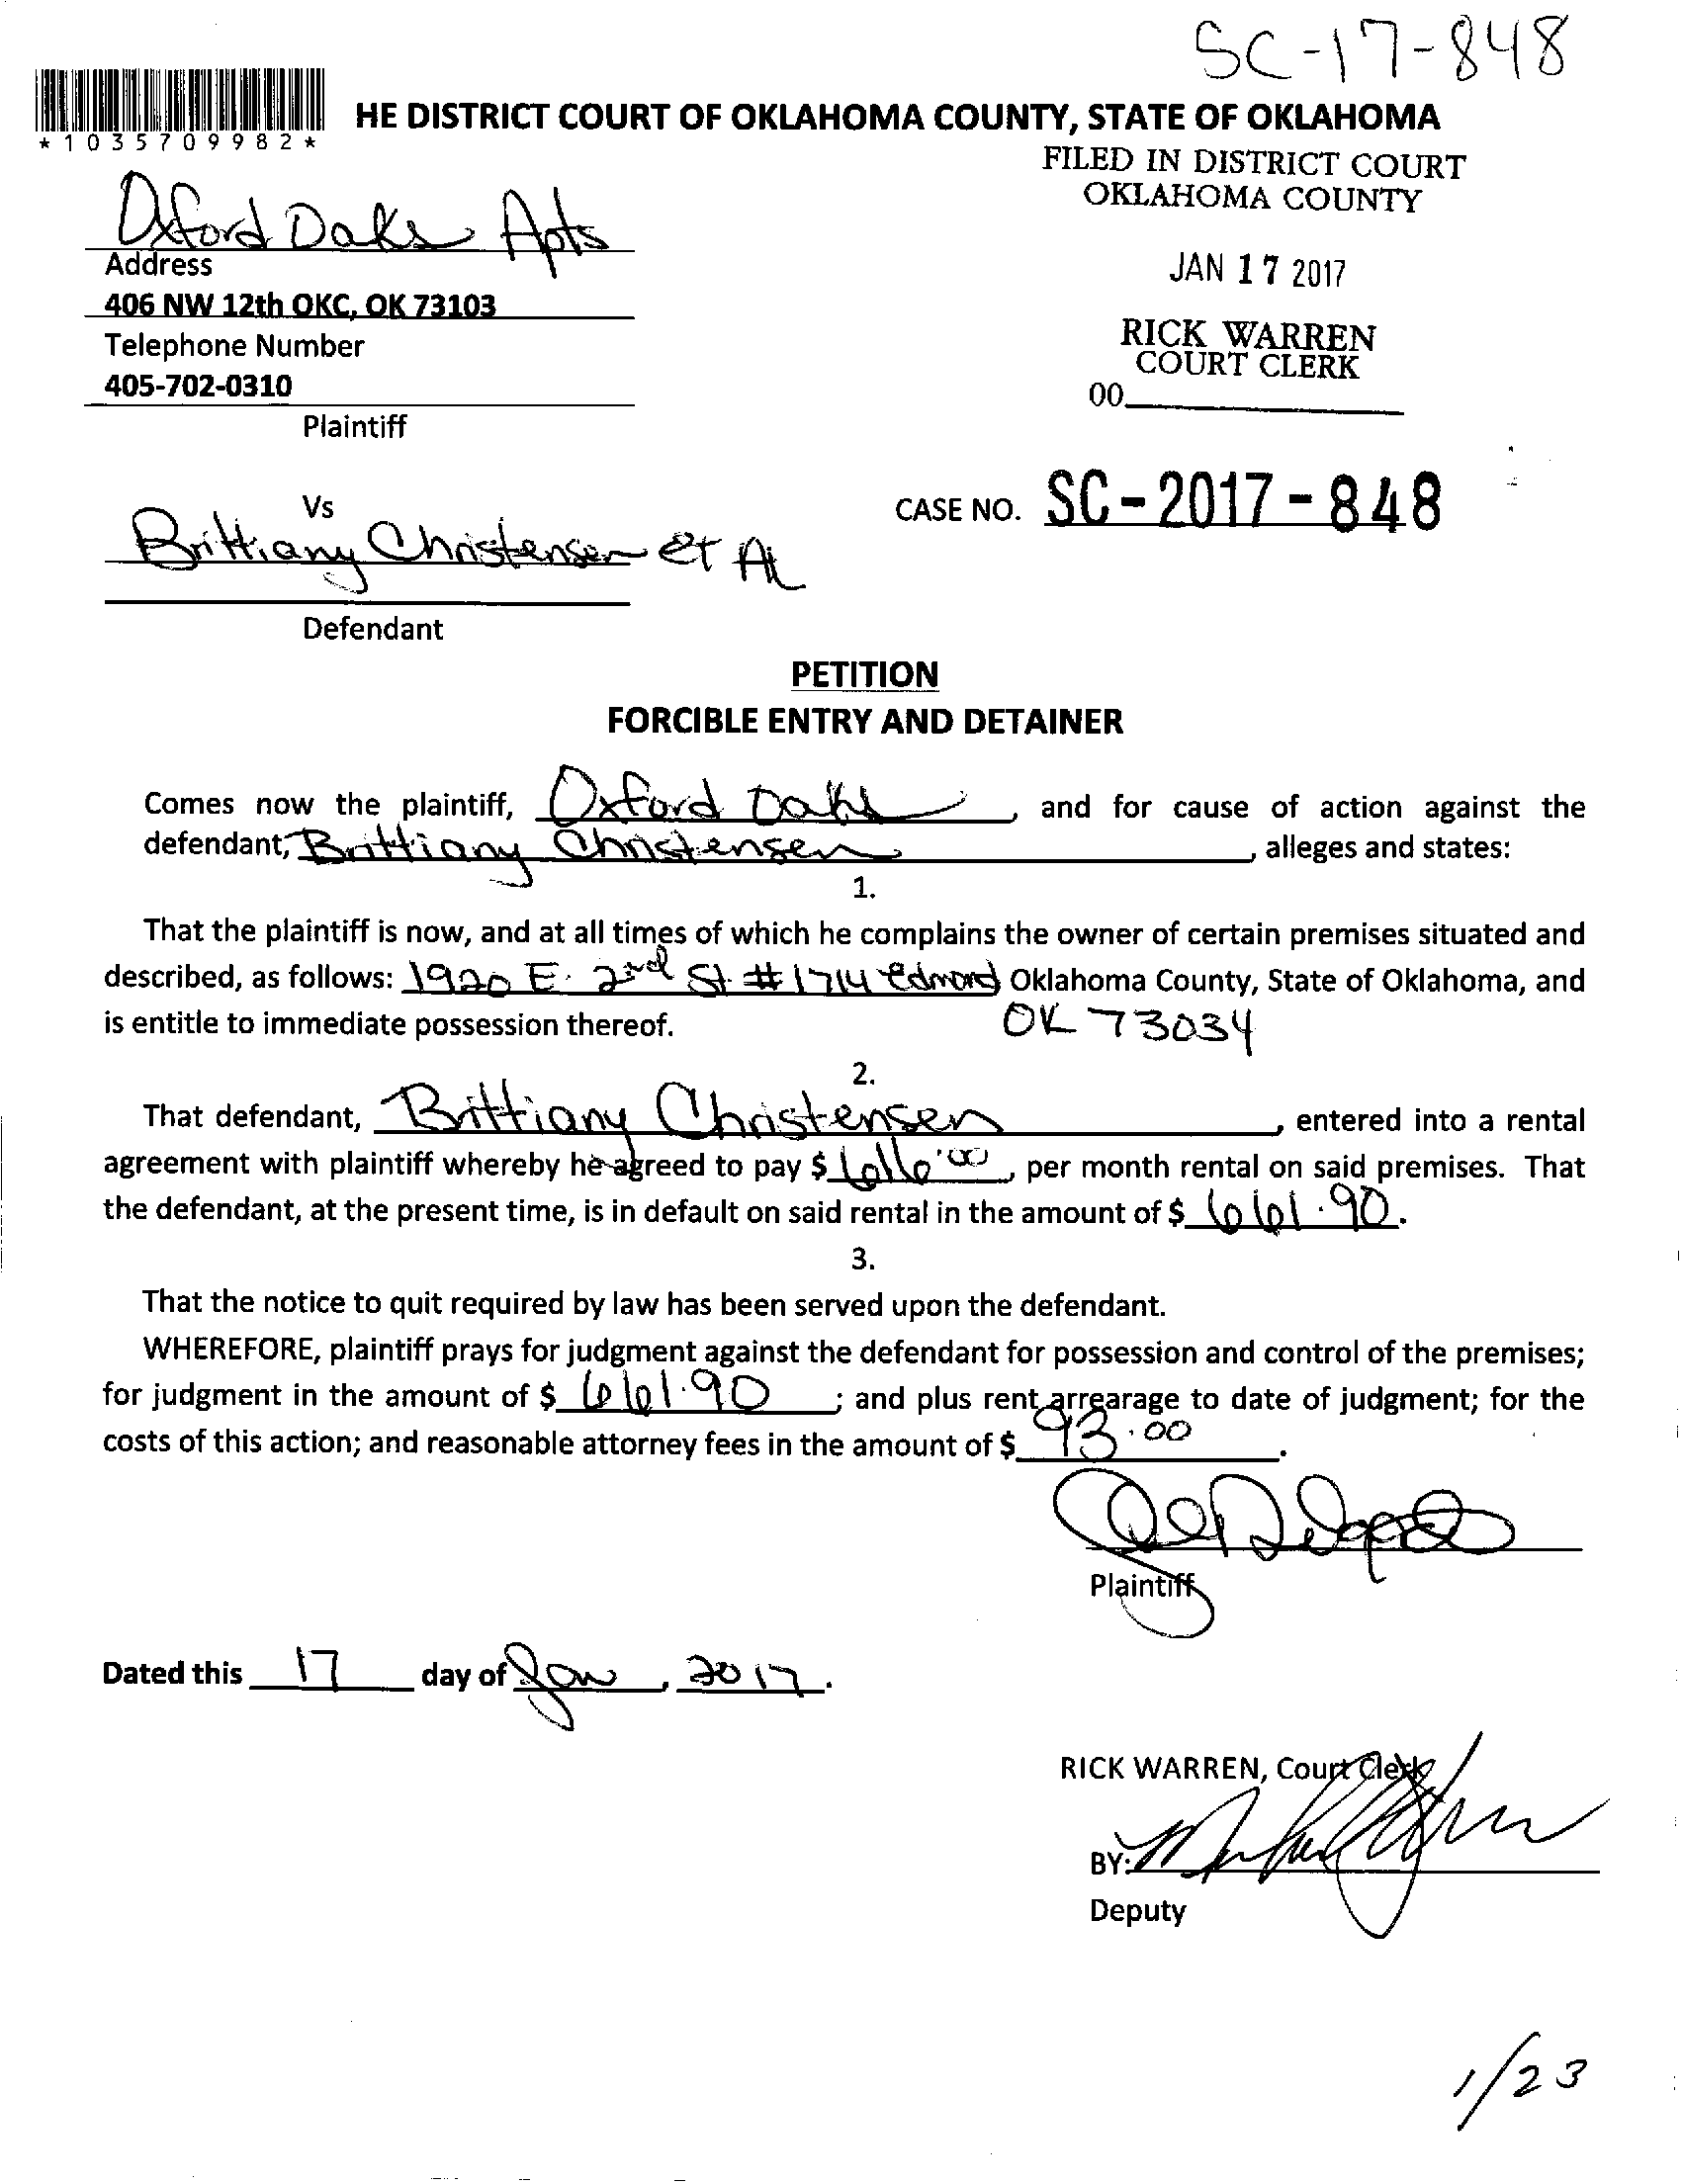 SC-17-848
*1035709982*
HE DISTRICT COURT OF OKLAHOMA COUNTY, STATE OF OKLAHOMA
FILED IN DISTRICT COURT
OKLAHOMA COUNTY
JAN 17 2017
RICK WARREN
COURT CLERK
00
Oxford Oaks Apts
Address
406 NW 12th OKC, OK 73103
Telephone Number
405-702-0310
Plaintiff
Vs
CASE NO. SC-2017-848
Brittiany Christensen et AL
Defendant
PETITION
FORCIBLE ENTRY AND DETAINER
Comes now the plaintiff, Oxford Oaks, and for cause of action against the
defendant, Brittiany Christensen, alleges and states:
1.
That the plaintiff is now, and at all times of which he complains the owner of certain premises situated and
described, as follows: 1920 E. 2nd St #1714 Edmond Oklahoma County, State of Oklahoma, and
is entitle to immediate possession thereof. OK 73034
2.
That defendant, Brittiany Christensen, entered into a rental
agreement with plaintiff whereby he agreed to pay $ , per month rental on said premises. That
the defendant, at the present time, is in default on said rental in the amount of $ 661.90.
3.
That the notice to quit required by law has been served upon the defendant.
WHEREFORE, plaintiff prays for judgment against the defendant for possession and control of the premises;
for judgment in the amount of $ 661.90; and plus rent arrearage to date of judgment; for the
costs of this action; and reasonable attorney fees in the amount of $ 93.00.
Plaintiff
Dated this 17 day of Jan, 2017.
RICK WARREN, Court Clerk
BY:
Deputy
1/23